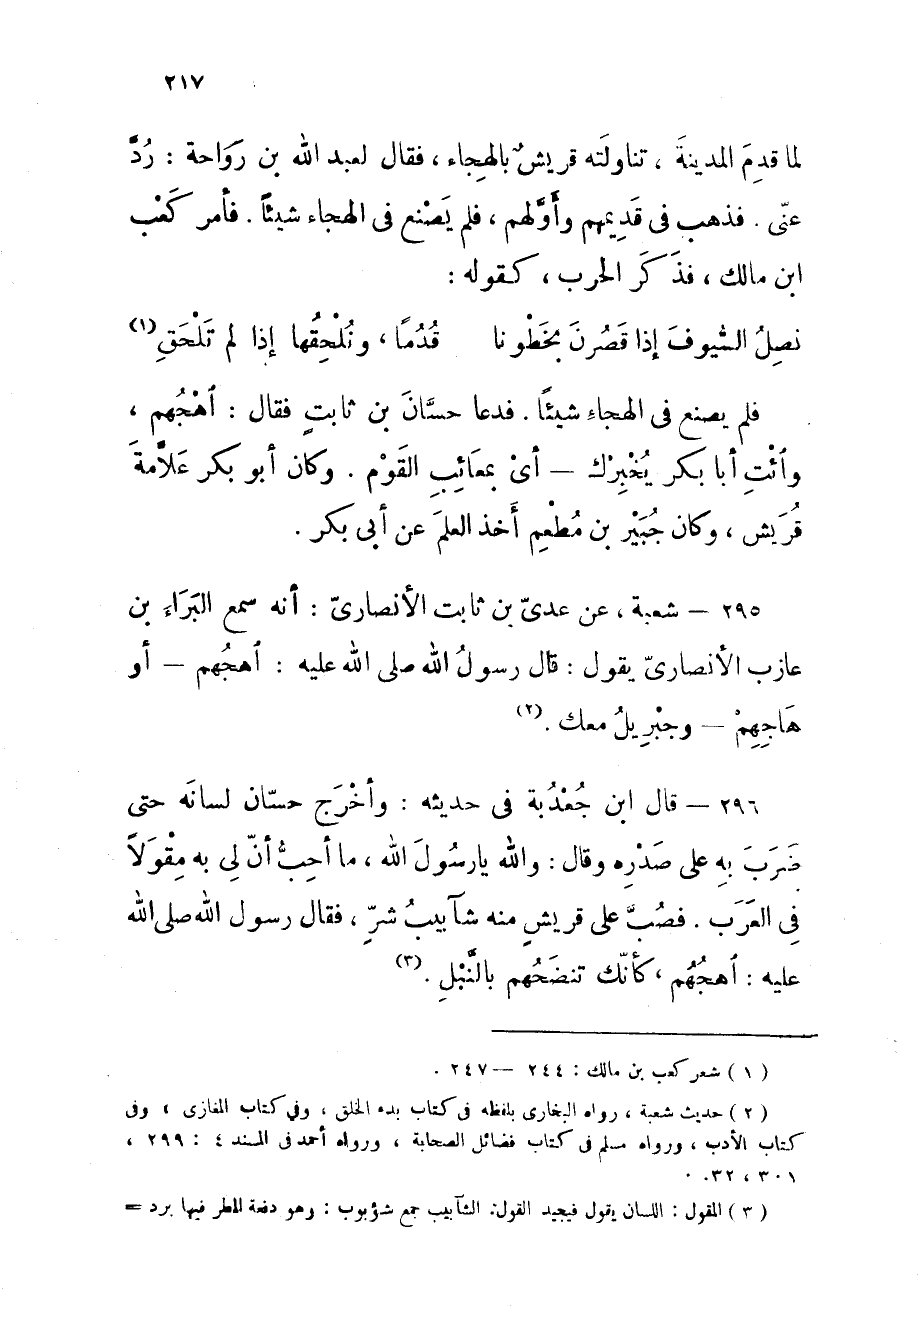 ٢١٧
لما قدِمَ المدينةَ ، تناولَته قريشٌ بالهجاء ، فقال لعبد الله بن رَوَاحة : رُدَّ
عنّى . فذهب فى قَدِيمهم وأَوَّلهم ، فلم يَصْنع فى الهجاء شيئًا . فأمر كَعْب
ابن مالك ، فذَكَر الحرب ، كقوله :
نصِلُ السُّيوفَ إذا قَصُرْنَ بخَطْونا قُدُمًا ، ونُلْحِقُها إذا لم تَلْحَقِ (١)
فلم يصنع فى الهجاء شيئًا . فدعا حسَّانَ بن ثابتٍ فقال : ٱهْجُهم ،
وٱئْتِ أبا بكر يُخْبِرْك — أىْ بمعَائِبِ القَوْم . وكان أبو بكر عَلاَّمةَ
قُرَيش ، وكان جُبَيْر بن مُطْعِم أَخذ العلمَ عن أبى بكر .
٢٩٥ — شعبة ، عن عدىّ بن ثابت الأنصارىّ : أنه سمع البَرَاءَ بن
عازب الأنصارىّ يقول : قال رسولُ الله صلى الله عليه : ٱهجُهم — أو
هَاجِهِمْ — وجبْرِيلُ معك . (٢)
٢٩٦ — قال ابن جُعْدُبة فى حديثه : وأخْرَج حسّان لسانَه حتى
ضَرَبَ به على صَدْرِه وقال : والله يارسُولَ الله ، ما أحِبُّ أنّ لى به مِقْوَلاً
فى العَرَب . فصُبَّ على قريشٍ منه شآبيبُ شرٍّ ، فقال رسول الله صلى الله
عليه : ٱهجُهُم ، كأنّك تنضَحُهم بالنَّبْلِ . (٣)
( ١ ) شعر كعب بن مالك : ٢٤٤ — ٢٤٧ .
( ٢ ) حديث شعبة ، رواه البخارى بلفظه فى كتاب بدء الخلق ، وفى كتاب المغازى ، وفى
كتاب الأدب ، ورواه مسلم فى كتاب فضائل الصحابة ، ورواه أحمد فى المسند ٤ : ٢٩٩ ،
٣٠١ ، ٣٢٠ .
( ٣ ) المقول : اللسان يقول فيجيد القول. الشآبيب جمع شؤبوب : وهو دفعة المطر فيها برد =